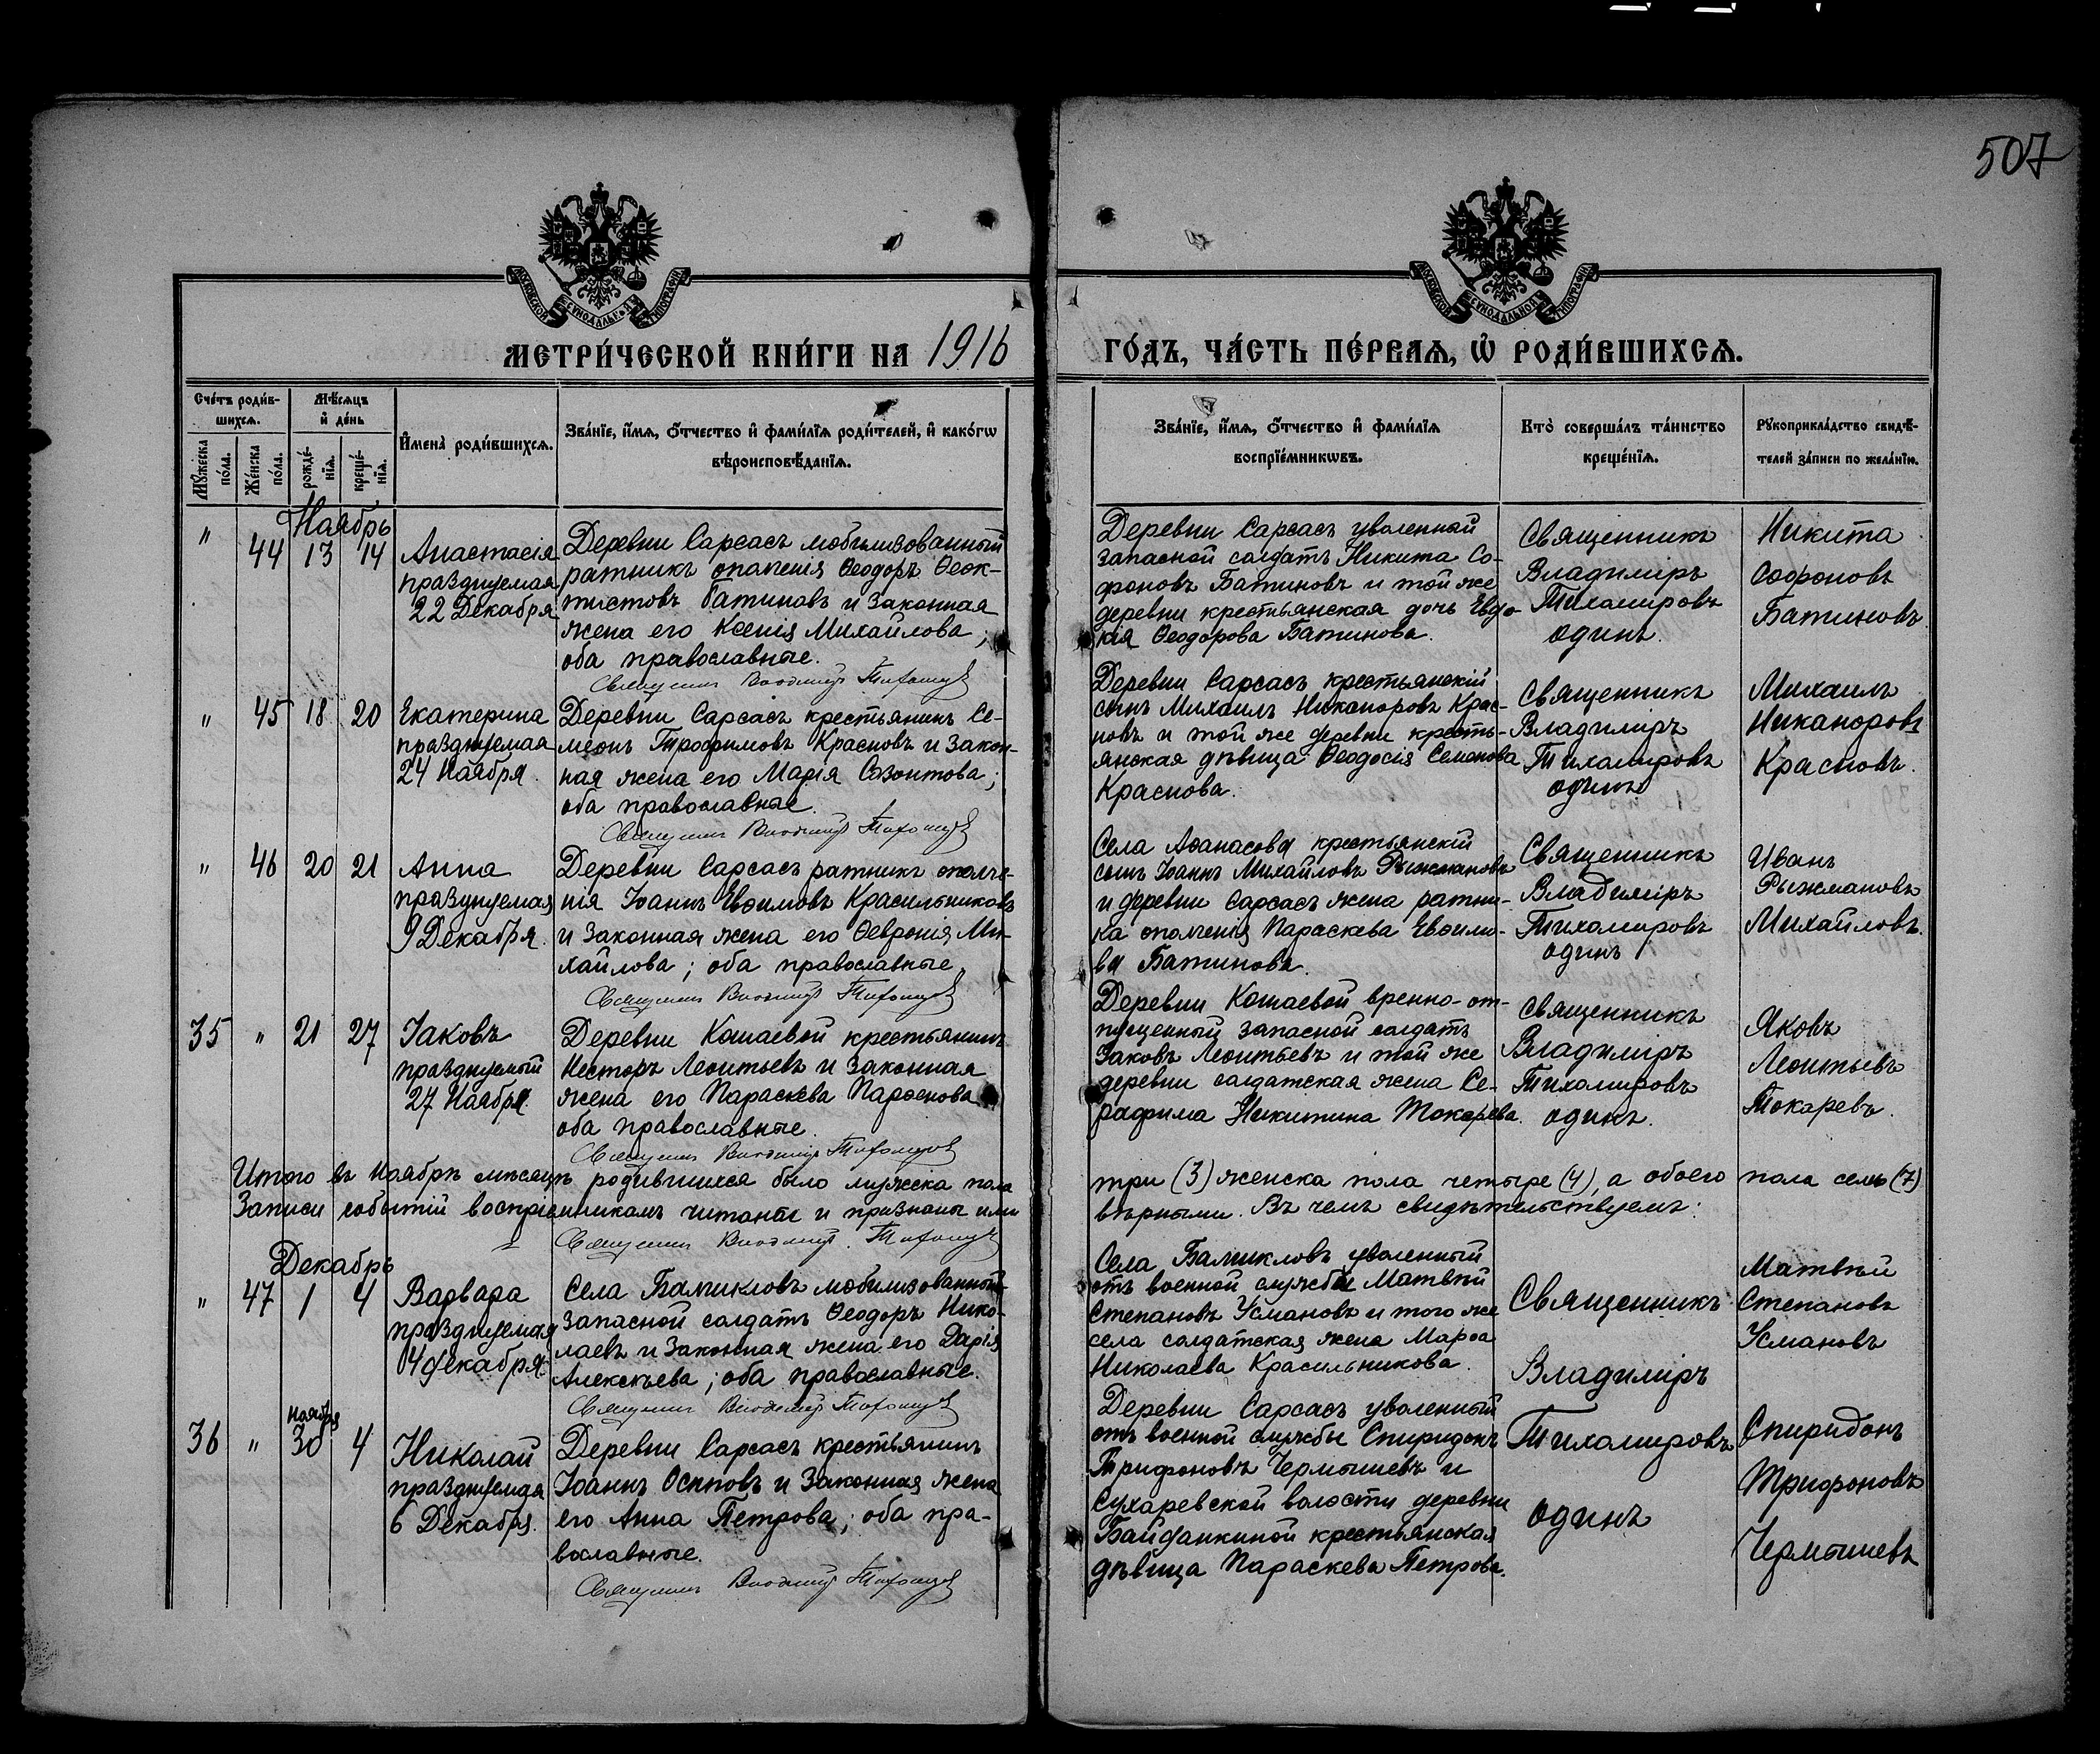 507
МОСКОВСКОЙ СѴНОДАЛЬНОЙ ТИПОГРАФІИ
МОСКОВСКОЙ СѴНОДАЛЬНОЙ ТИПОГРАФІИ
МЕТРИ́ЧЕСКОЙ КНИ́ГИ НА 1916
ГО́ДЪ, ЧА́СТЬ ПЕ́РВАЯ, Ѡ РОДИ́ВШИХСЯ.
Сче́тъ роди́в-
шихся.
Мѣ́сяцъ
и де́нь
Мꙋ́жеска
по́ла.
Же́нска
по́ла.
рожде́-
нїя.
креще́-
нїя.
Имена̀ роди́вшихся.
Зва́нїе, и́мя, ѻ́тчество и фами́лїя роди́телей, и како́гѡ
вѣроисповѣ́данїя.
Зва́нїе, и́мя, ѻ́тчество и фами́лїя
воспрїе́мникѡвъ.
Кто̀ соверша́лъ та́инство
креще́нїя.
Рꙋкоприкла́дство свидѣ́-
телей за́писи по жела́нїю.
Ноябрь
" 44 13 14
Анастасія
празднуемая
22 Декабря
Деревни Сарсасъ мобилизованный
ратникъ ополченія Ѳеодоръ Ѳеок-
тистовъ Батиновъ и законная
жена его Ксенія Михайлова;
оба православные.
Священникъ Владимір Тихомиров
Деревни Сарсасъ уволенный
запасной солдатъ Никита Со-
фроновъ Батиновъ и той же
деревни крестьянская дочь Евдо-
кія Ѳеодорова Батинова.
Священникъ
Владиміръ
Тихомировъ
одинъ.
Никита
Софроновъ
Батиновъ
" 45 18 20
Екатерина
празднуемая
24 Ноября.
Деревни Сарсасъ крестьянинъ Се-
меонъ Трофимовъ Красновъ и закон-
ная жена его Марія Созонтова;
оба православные.
Священникъ Владимір Тихомиров
Деревни Сарсасъ крестьянскій
сынъ Михаилъ Никаноровъ Крас-
новъ и той же деревни кресть-
янская дѣвица Ѳеодосія Семенова
Краснова.
Священникъ
Владиміръ
Тихомировъ
одинъ
Михаилъ
Никаноровъ
Красновъ.
" 46 20 21
Анна
празднуемая
9 Декабря.
Деревни Сарсасъ ратникъ ополче-
нія Іоаннъ Евѳимовъ Красильниковъ
и законная жена его Ѳевронія Ми-
хайлова; оба православные
Священникъ Владимір Тихомиров
Села Аѳанасова крестьянскій
сынъ Іоаннъ Михайловъ Рыжмановъ
и деревни Сарсасъ жена ратни-
ка ополченія Параскева Евѳимо-
ва Батинова.
Священникъ
Владиміръ
Тихомировъ
одинъ
Иванъ
Рыжмановъ
Михайловъ.
35 " 21 27
Іаковъ
празднуемый
27 Ноября.
Деревни Кошаевой крестьянинъ
Несторъ Леонтьевъ и законная
жена его Параскева Парѳенова
оба православные.
Священникъ Владимір Тихомиров
Деревни Кошаевой вренно-от-
пущенный запасной солдатъ
Іаковъ Леонтьевъ и той же
деревни солдатская жена Се-
рафима Никитина Токарева.
Священникъ
Владиміръ
Тихомировъ
одинъ.
Яковъ
Леонтьевъ
Токаревъ.
Итого въ Ноябрѣ мѣсяцѣ родившихся было мужеска пола
три (3) женска пола четыре (4), а обоего пола семь (7)
Записи событій воспріемникамъ читаны и признаны ими
вѣрными. Въ чемъ свидѣтельствуемъ:
Священникъ Владимір Тихомиров
Декабрь
" 47 1 4
Варвара
празднуемая
4 Декабря.
Села Бамиковъ мобилизованный
запасной солдатъ Ѳеодоръ Нико-
лаевъ и законная жена его Дарія
Алексѣева; оба православные.
Священникъ Владимір Тихомиров
уволенный
отъ военной службы Матвѣй
Степановъ Усмановъ и того же
села солдатская жена Марѳа
Николаева Красильникова.
Священникъ
Владиміръ
Тихомировъ
одинъ
Матвѣй
Степановъ
Усмановъ
Ноября
36 " 30 4
Николай
празднуемая
6 Декабря.
Деревни Сарсасъ крестьянинъ
Іоаннъ Осиповъ и законная жена
его Анна Петрова; оба пра-
вославные.
Священникъ Владимір Тихомиров
Деревни Сарсасъ уволенный
отъ военной службы Спиридонъ
Трифоновъ Чермышевъ и
Сухаревской волости деревни
Байданкиной крестьянская
дѣвица Параскева Петрова.
Спиридонъ
Трифоновъ
Чермышевъ